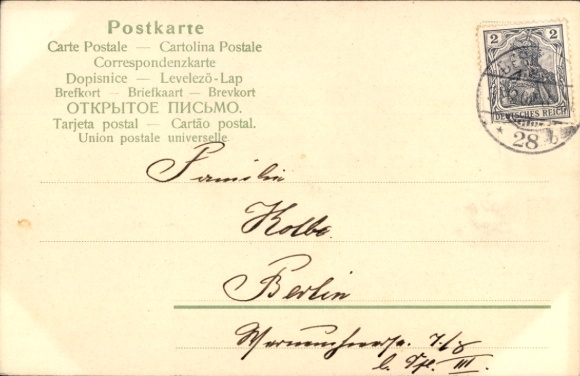 Postkarte
Carte Postale — Cartolina Postale
Correspondenzkarte
Dopisnice — Levelező-Lap
Brefkort — Briefkaart — Brevkort
ОТКРЫТОЕ ПИСЬМО.
Tarjeta postal — Cartão postal.
Union postale universelle.
2 2
DEUTSCHES REICH
28
Familie
Kolbe.
Berlin
7/8
III